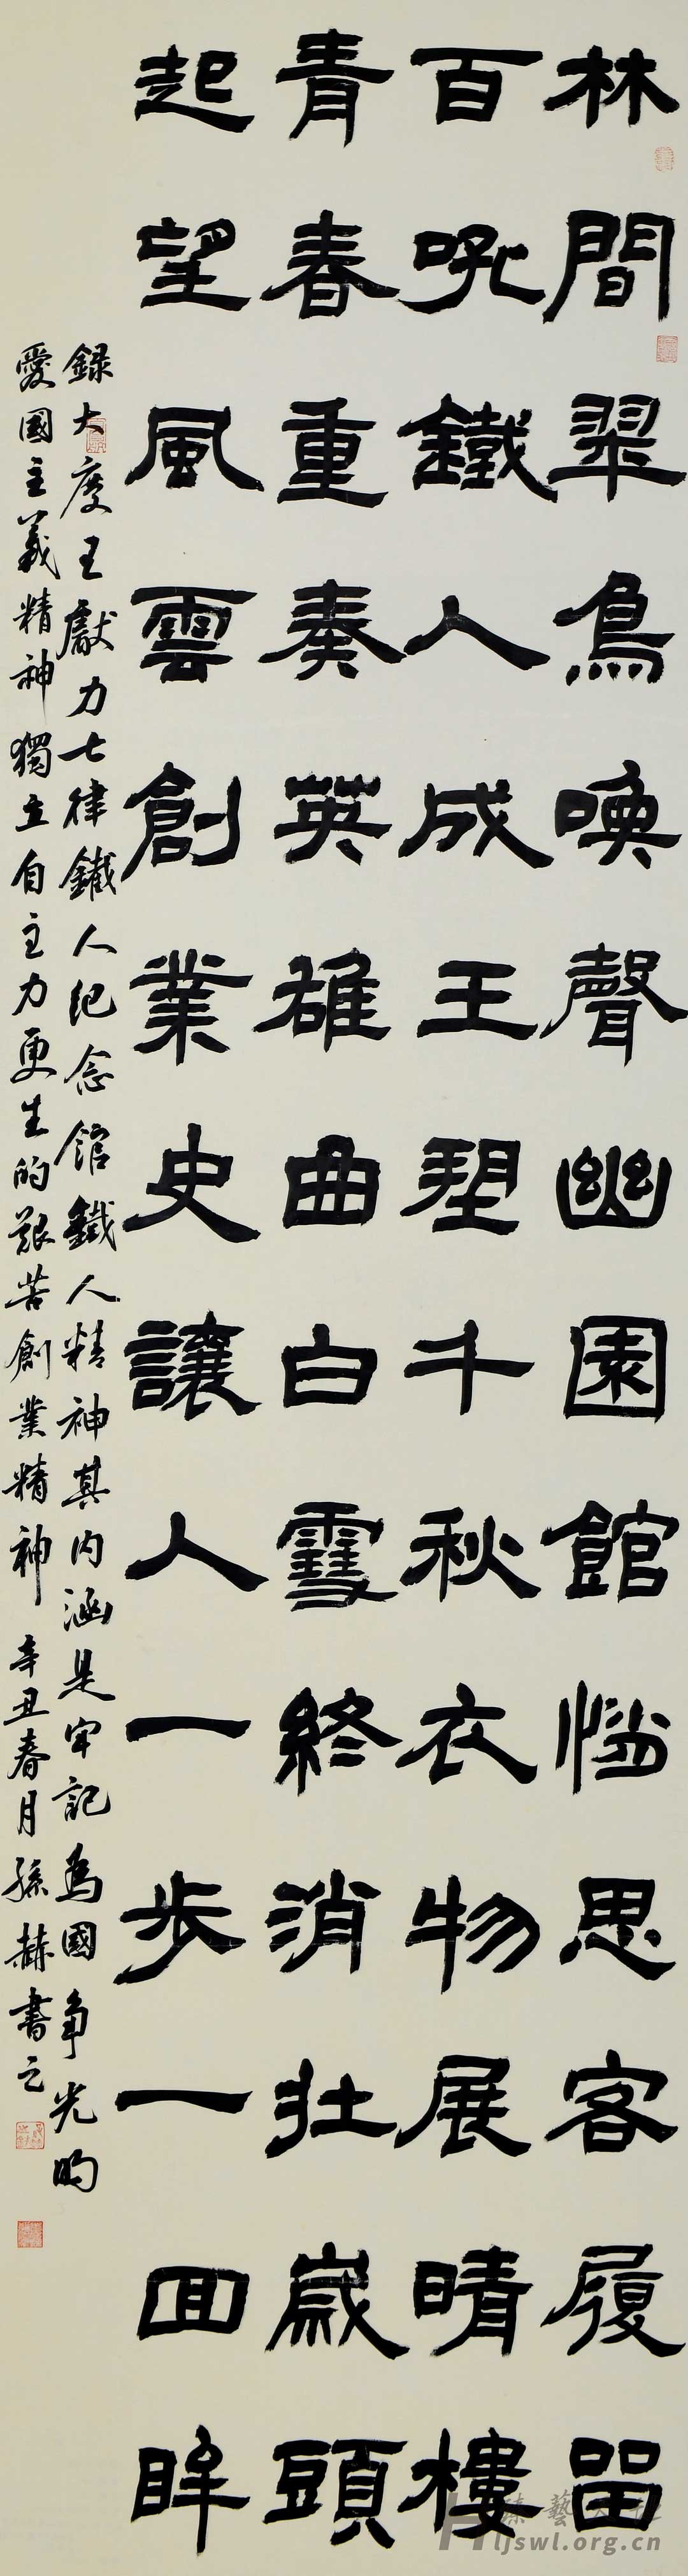 林間翠鳥喚聲幽園館思客履留
百吼鐵人成王塑千秋衣物展晴樓
青春重奏英雄曲白雪終消壯歲頭
起望風雲創業史讓人一步一回眸
錄大度王獻力七律鐵人紀念館鐵人精神其内涵是牢記爲國爭光的
愛國主義精神獨立自主力更生的艱苦創業精神辛丑春月孫赫書之
Hljswl.org.cn